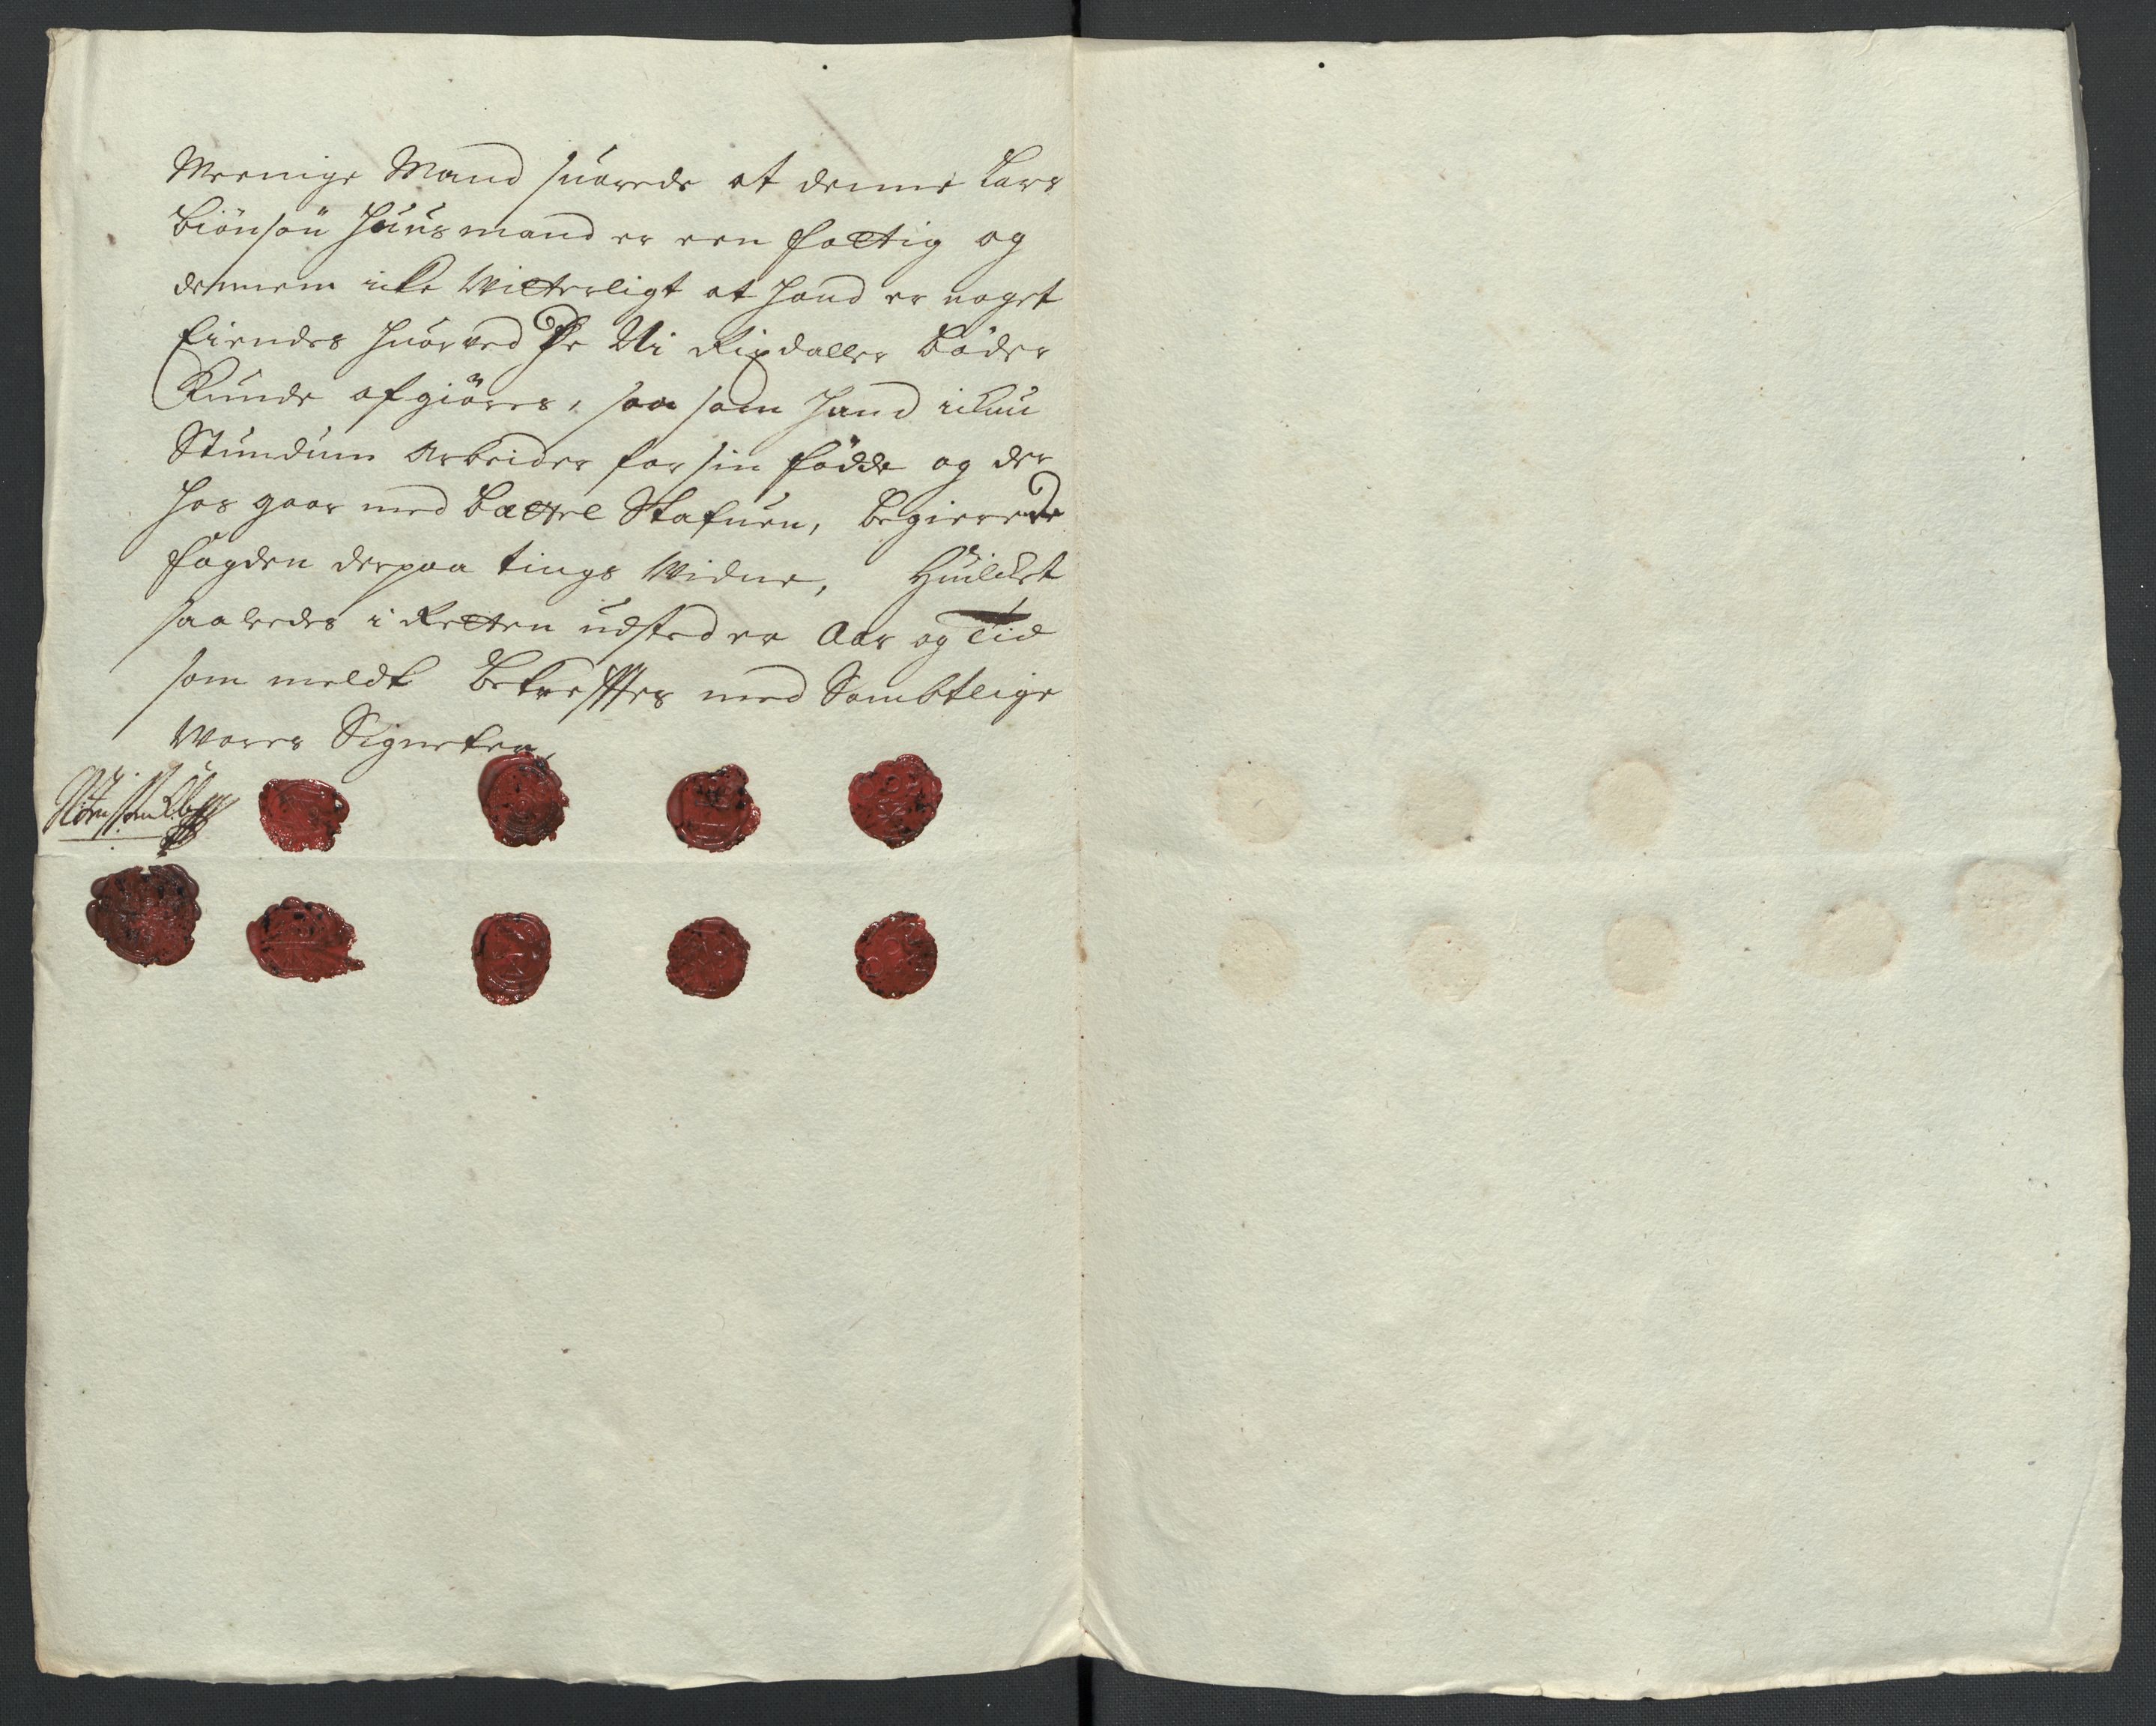 Meenige Mand suarede at denne Lars
Biönsön Huusmand er een fattig og
dennem icke Witterligt at hand er noget
Eiendes huorved De Ni Rixdaller Böder
Kunde afgiöres, saa som hand ickun
Stundum Arbeider for sin födde og der
hos gaar med Bettel Stafuen, Begierede
fogden derpaa tings Widne, Huilcket
saaledes i Retten udsteder Aar og Tid
som meldt Bekreffter med Sambtlige
Wores Signeter,